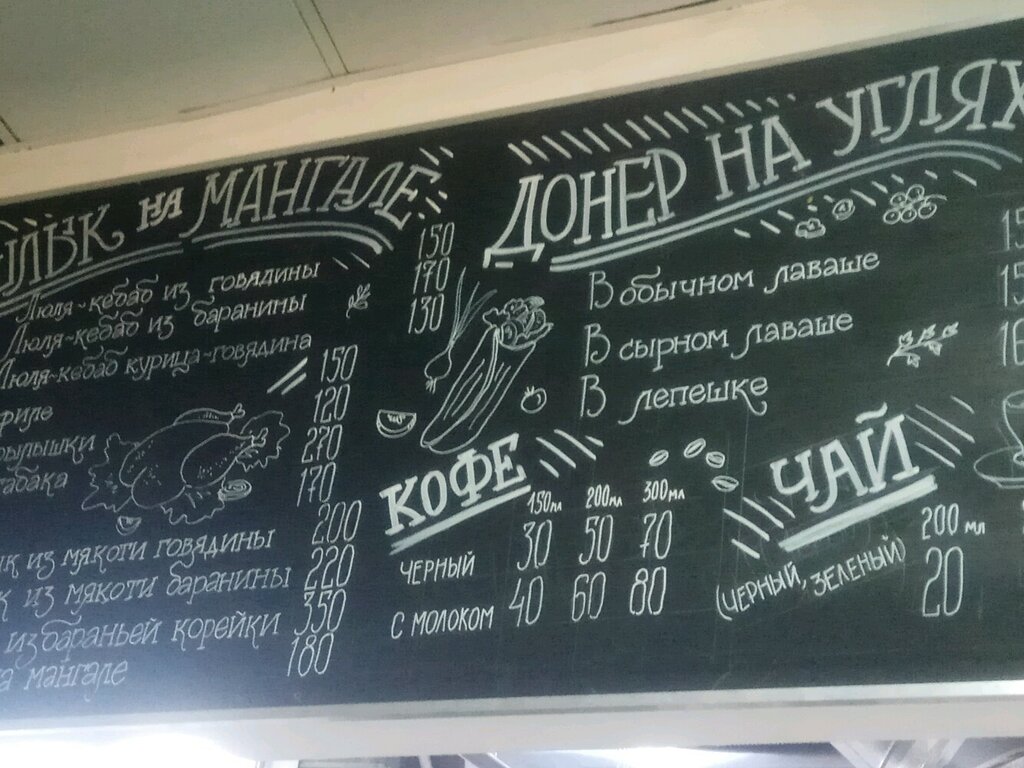 НА МАНГАЛЕ
Люля-кебаб из говядины 150
Люля-кебаб из баранины 170
Люля-кебаб курица-говядина 130
150
120
270
170
из мякоти говядины 200
из мякоти баранины 220
из бараньей корейки 350
мангале 180
ДОНЕР НА УГЛЯХ
В обычном лаваше
В сырном лаваше
В лепешке
КОФЕ
150мл 200мл 300мл
ЧЕРНЫЙ 30 50 70
С МОЛОКОМ 40 60 80
ЧАЙ
200 мл
(ЧЕРНЫЙ, ЗЕЛЕНЫЙ) 20